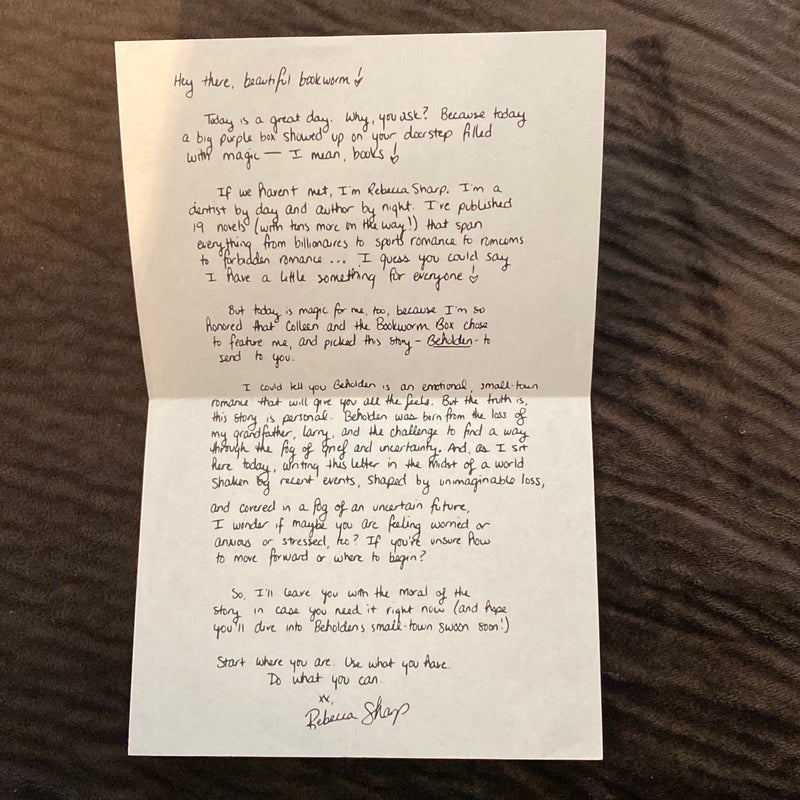 Hey there, beautiful bookworm!
Today is a great day. Why, you ask? Because today
a big purple box showed up on your doorstep filled
with magic — I mean, books!
If we haven't met, I'm Rebecca Sharp. I'm a
dentist by day and author by night. I've published
19 novels (with tons more on the way!) that span
everything from billionaires to sports romance to romcoms
to forbidden romance ... I guess you could say
I have a little something for everyone!
But today is magic for me, too, because I'm so
honored that Colleen and the Bookworm Box chose
to feature me, and picked this story - Beholden - to
send to you.
I could tell you Beholden is an emotional, small-town
romance that will give you all the feels. But the truth is,
this story is personal. Beholden was born from the loss of
my grandfather, Larry, and the challenge to find a way
through the fog of grief and uncertainty. And, as I sit
here today, writing this letter in the midst of a world
shaken by recent events, shaped by unimaginable loss,
and covered in a fog of an uncertain future,
I wonder if maybe you are feeling worried or
anxious or stressed, too? If you're unsure how
to move forward or where to begin?
So, I'll leave you with the moral of the
story in case you need it right now (and hope
you'll dive into Beholden's small-town swoon soon!)
Start where you are. Use what you have.
Do what you can.
xx,
Rebecca Sharp